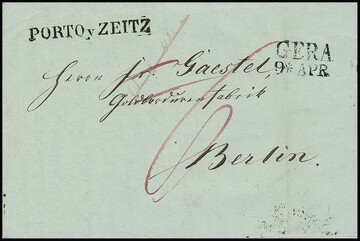 PORTO v ZEITZ
GERA
9* APR.
Herrn Fr. Gaestel
Goldborduren Fabrik
6
Berlin.